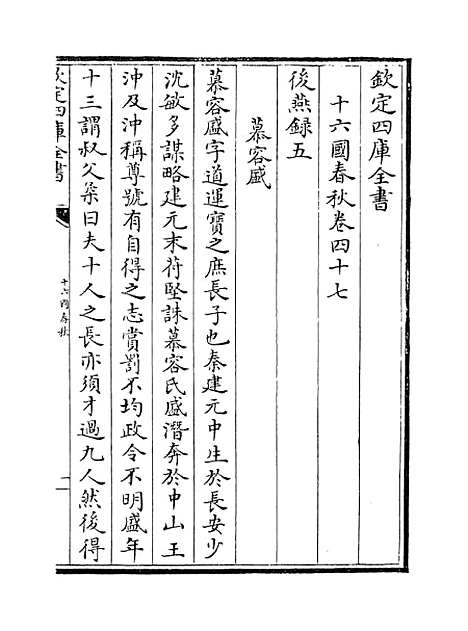 欽定四庫全書
十六國春秋卷四十七
後燕録五
慕容盛
慕容盛字道運寶之庶長子也秦建元中生於長安少
沈敏多謀略建元末苻堅誅慕容氏盛潛奔於中山王
沖及沖稱尊號有自得之志賞罰不均政令不明盛年
十三謂叔父柒曰夫十人之長亦須才過九人然後得
欽定四庫全書
十六國春秋
一